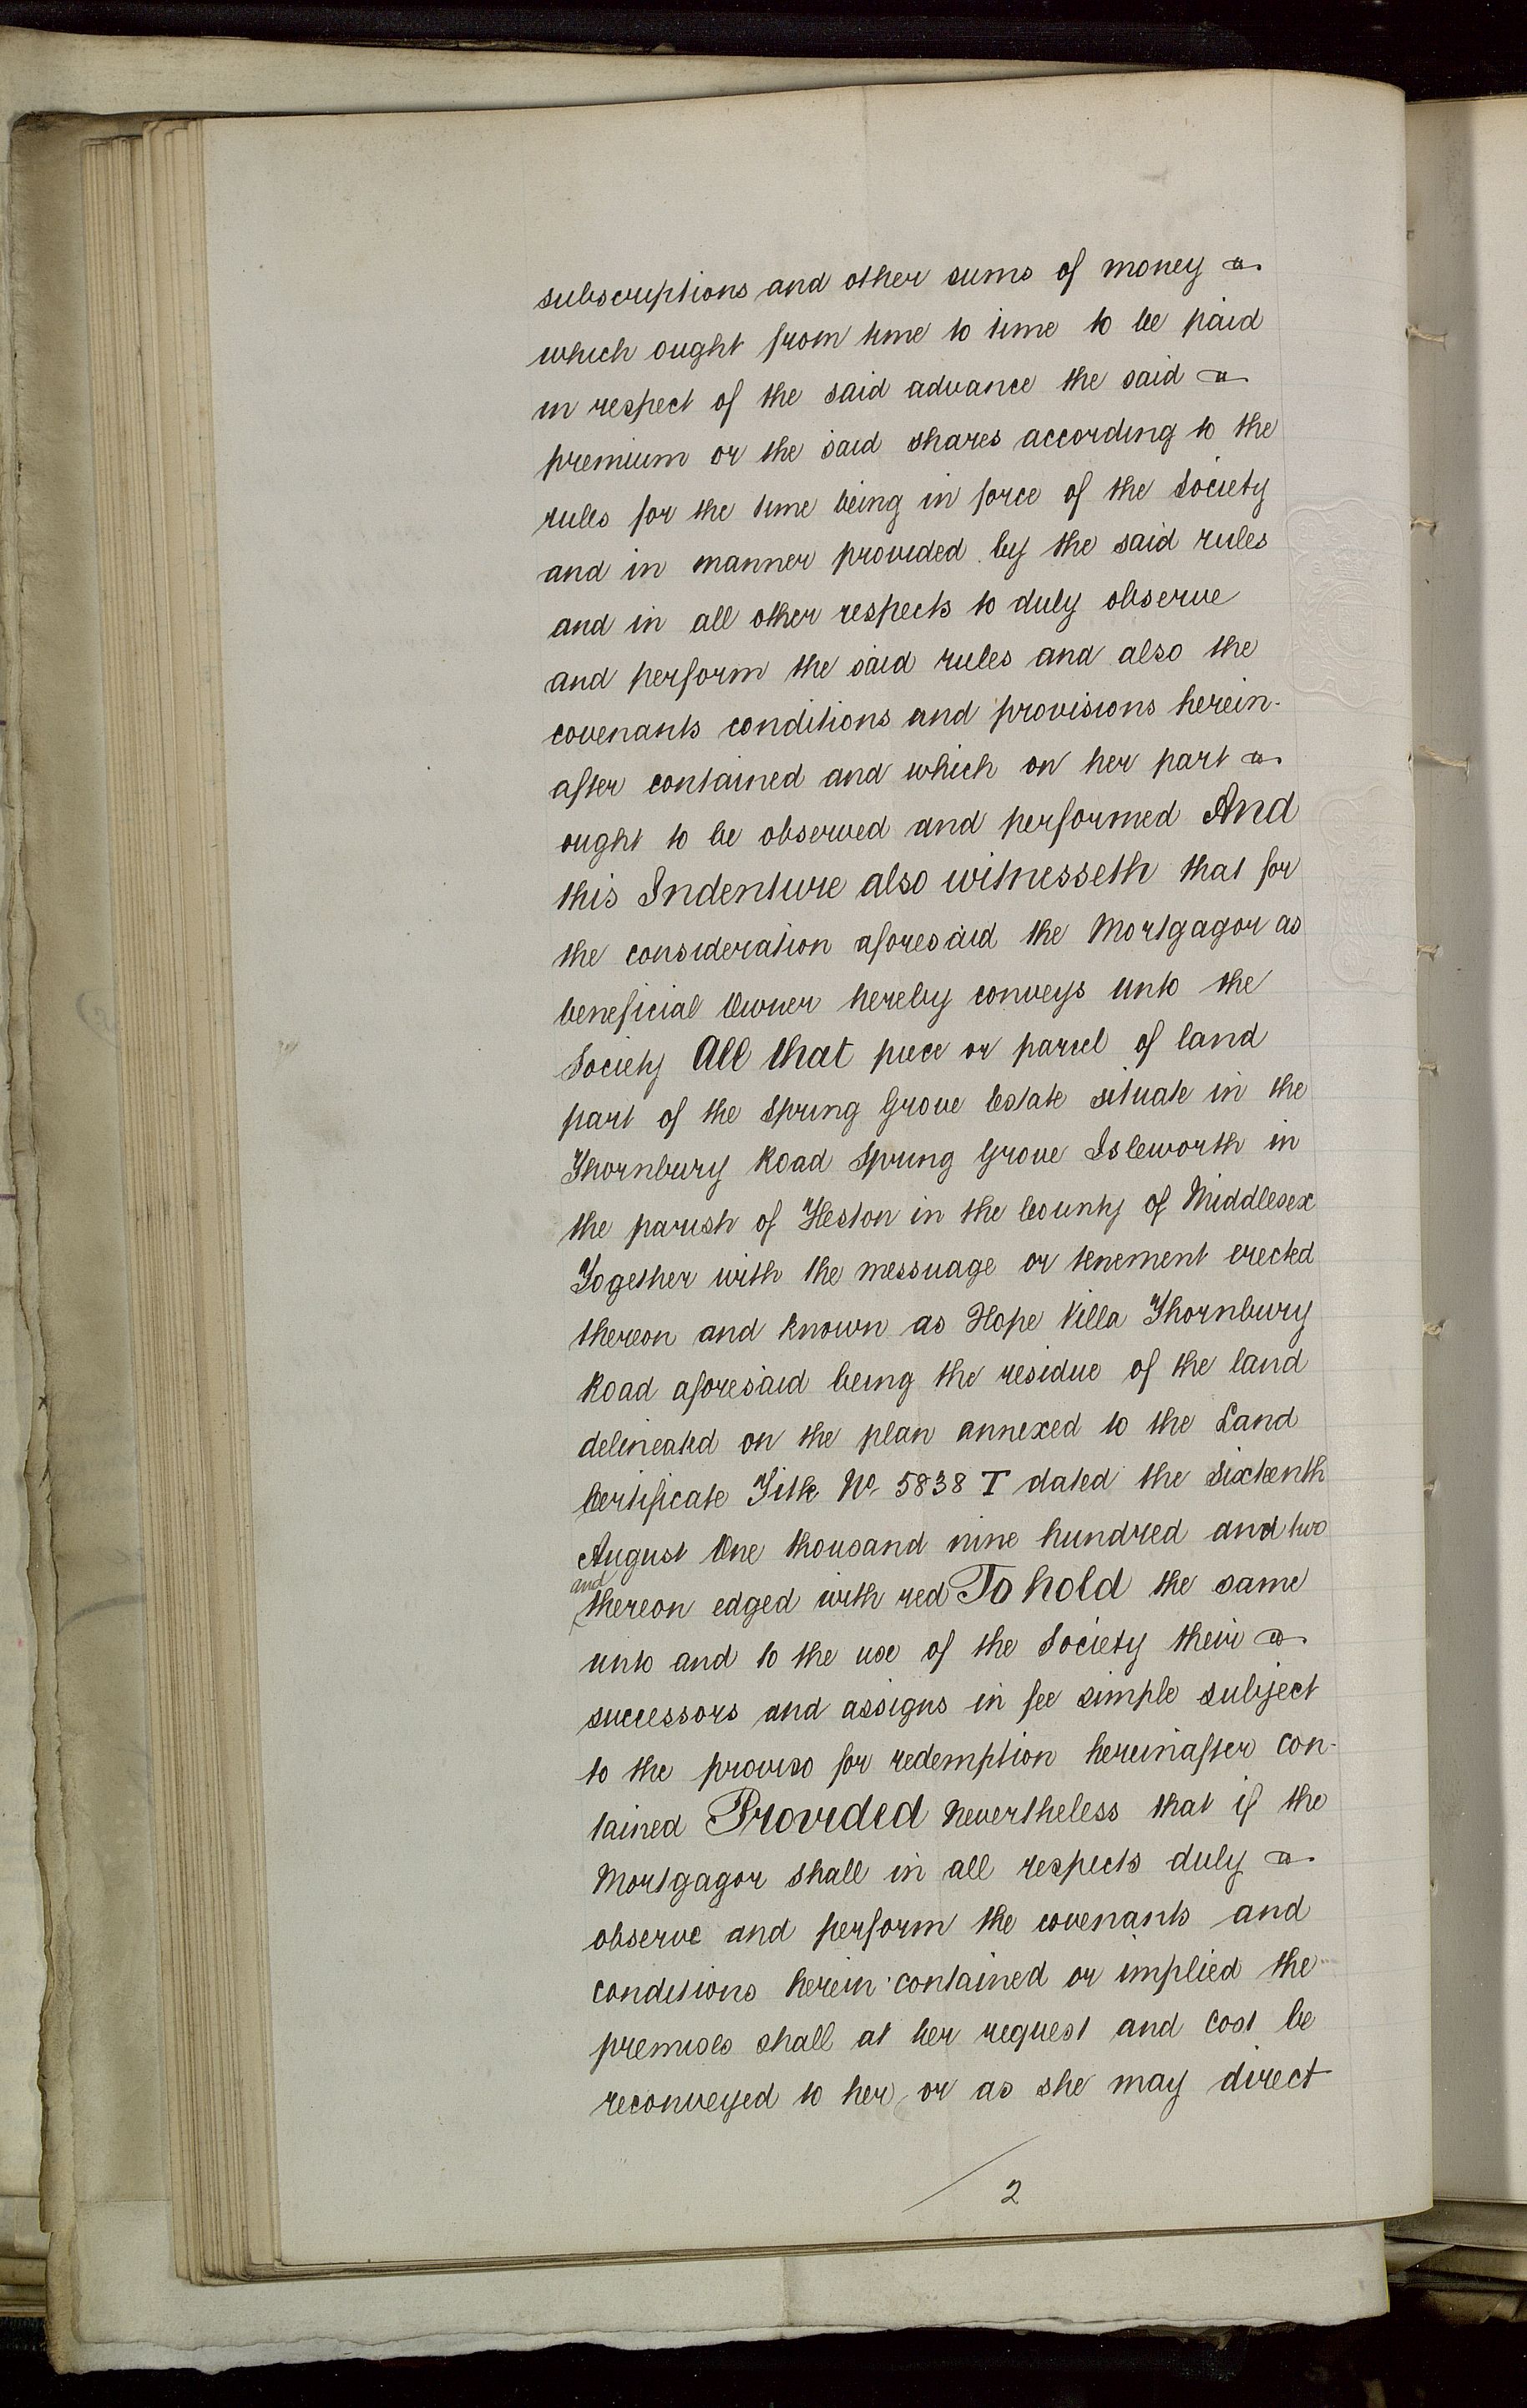 subscriptions and other sums of money
which ought from time to time to be paid
in respect of the said advance the said
premium or the said shares according to the
rules for the time being in force of the Society
and in manner provided by the said rules
and in all other respects to duly observe
and perform the said rules and also the
covenants conditions and provisions herein-
after contained and which on her part
ought to be observed and performed And
this Indenture also witnesseth that for
the consideration aforesaid the Mortgagor as
beneficial Owner hereby conveys unto the
Society All that piece or parcel of land
part of the Spring Grove Estate situate in the
Thornbury Road Spring Grove Isleworth in
the parish of Heston in the County of Middlesex
Together with the messuage or tenement erected
thereon and known as Hope Villa Thornbury
Road aforesaid being the residue of the land
delineated on the plan annexed to the Land
Certificate Title No. 5838 T dated the Sixteenth
August One thousand nine hundred and two
and
thereon edged with red To hold the same
unto and to the use of the Society their
successors and assigns in fee simple subject
to the proviso for redemption hereinafter con-
tained Provided Nevertheless that if the
Mortgagor shall in all respects duly
observe and perform the covenants and
conditions herein contained or implied the
premises shall at her request and cost be
reconveyed to her or as she may direct
2